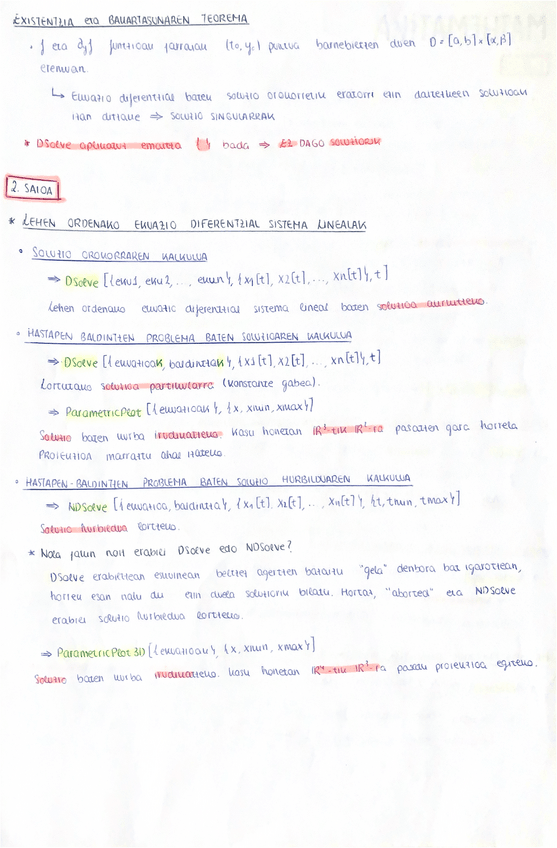 EXISTENTZIA eta BAKARTASUNAREN TEOREMA
• f eta ∂yf funtzioak jarraiak (t0, y0) puntua barnebiltzen duen D = [a,b]×[α,β]
eremuan.
↳ Ekuazio diferentzial baten soluzio orokorretik eratorri ezin daitezkeen soluzioak
izan ditzake ⇒ SOLUZIO SINGULARRAK
* DSolve aplikatuz emaitza { } bada ⇒ EZ DAGO SOLUZIORIK
2. SAIOA
* LEHEN ORDENAKO EKUAZIO DIFERENTZIAL SISTEMA LINEALAK
• SOLUZIO OROKORRAREN KALKULUA
⇒ DSolve [{eku1, eku2, ..., ekun}, {x1[t], x2[t], ..., xn[t]}, t]
Lehen ordenako ekuazio diferentzial sistema lineal baten soluzioa aurkitzeko.
• HASTAPEN BALDINTZEN PROBLEMA BATEN SOLUZIOAREN KALKULUA
⇒ DSolve [{ekuazioak, baldintzak}, {x1[t], x2[t], ..., xn[t]}, t]
Lortutako soluzioa partikularra (konstante gabea).
⇒ ParametricPlot [{ekuazioak}, {x, xmin, xmax}]
Soluzio baten kurba irudikatzeko. Kasu honetan ℝ³-tik ℝ²-ra pasatzen gara horrela
PROIEKZIOA marraztu ahal izateko.
• HASTAPEN-BALDINTZEN PROBLEMA BATEN SOLUZIO HURBILDUAREN KALKULUA
⇒ NDSolve [{ekuazioa, baldintza}, {x1[t], x2[t], ..., xn[t]}, {t, tmin, tmax}]
Soluzio hurbildua lortzeko.
* Nola jakin noiz erabili DSolve edo NDSolve?
DSolve erabiltzean ezkerrean beltzez agertzen bazaizu "gela" denbora bat igarotzean,
horrek esan nahi du ezin duela soluziorik bilatu. Hortaz, "abortea" eta NDSolve
erabili soluzio hurbildua lortzeko.
⇒ ParametricPlot3D [{ekuazioak}, {x, xmin, xmax}]
Soluzio baten kurba irudikatzeko. Kasu honetan ℝ⁴-tik ℝ³-ra pasatu proiekzioa egiteko.